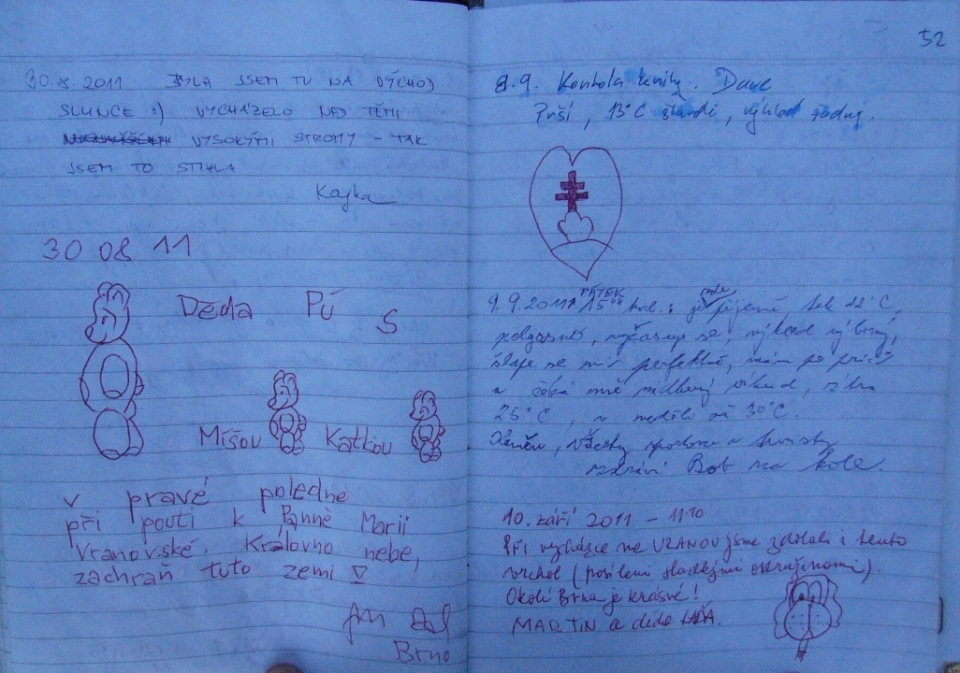 30.8.2011 BYLA JSEM TU NA VÝCHOD
SLUNCE :) VYCHÁZELO NAD TĚMI
VYSOKÝMI STROMY - TAK
JSEM TO STIHLA
Kajka
30 08 11
Děda Pú S
Míšou Katkou
v pravé poledne
při pouti k Panně Marii
Vranovské. Královno nebe,
zachraň tuto zemi
Brno
52
8.9. Kontrola knihy. Dave
Prší, 13°C, výhled žádný.
9.9.2011 PÁTEK 15 hod.: je příjemně, 22°C,
polojasno, se, výhled výborný,
se mi perfektně, mám po práci
a mě víkend, zítra
25°C, v neděli až 30°C.
všechny sportovce a turisty
zdraví Bob na kole.
10. září 2011 - 11:10
Při vycházce na VRANOV jsme zdolali i tento
vrchol (posíleni sladkými ostružinami).
Okolí Brna je krásné!
MARTIN a děda LÁĎA.